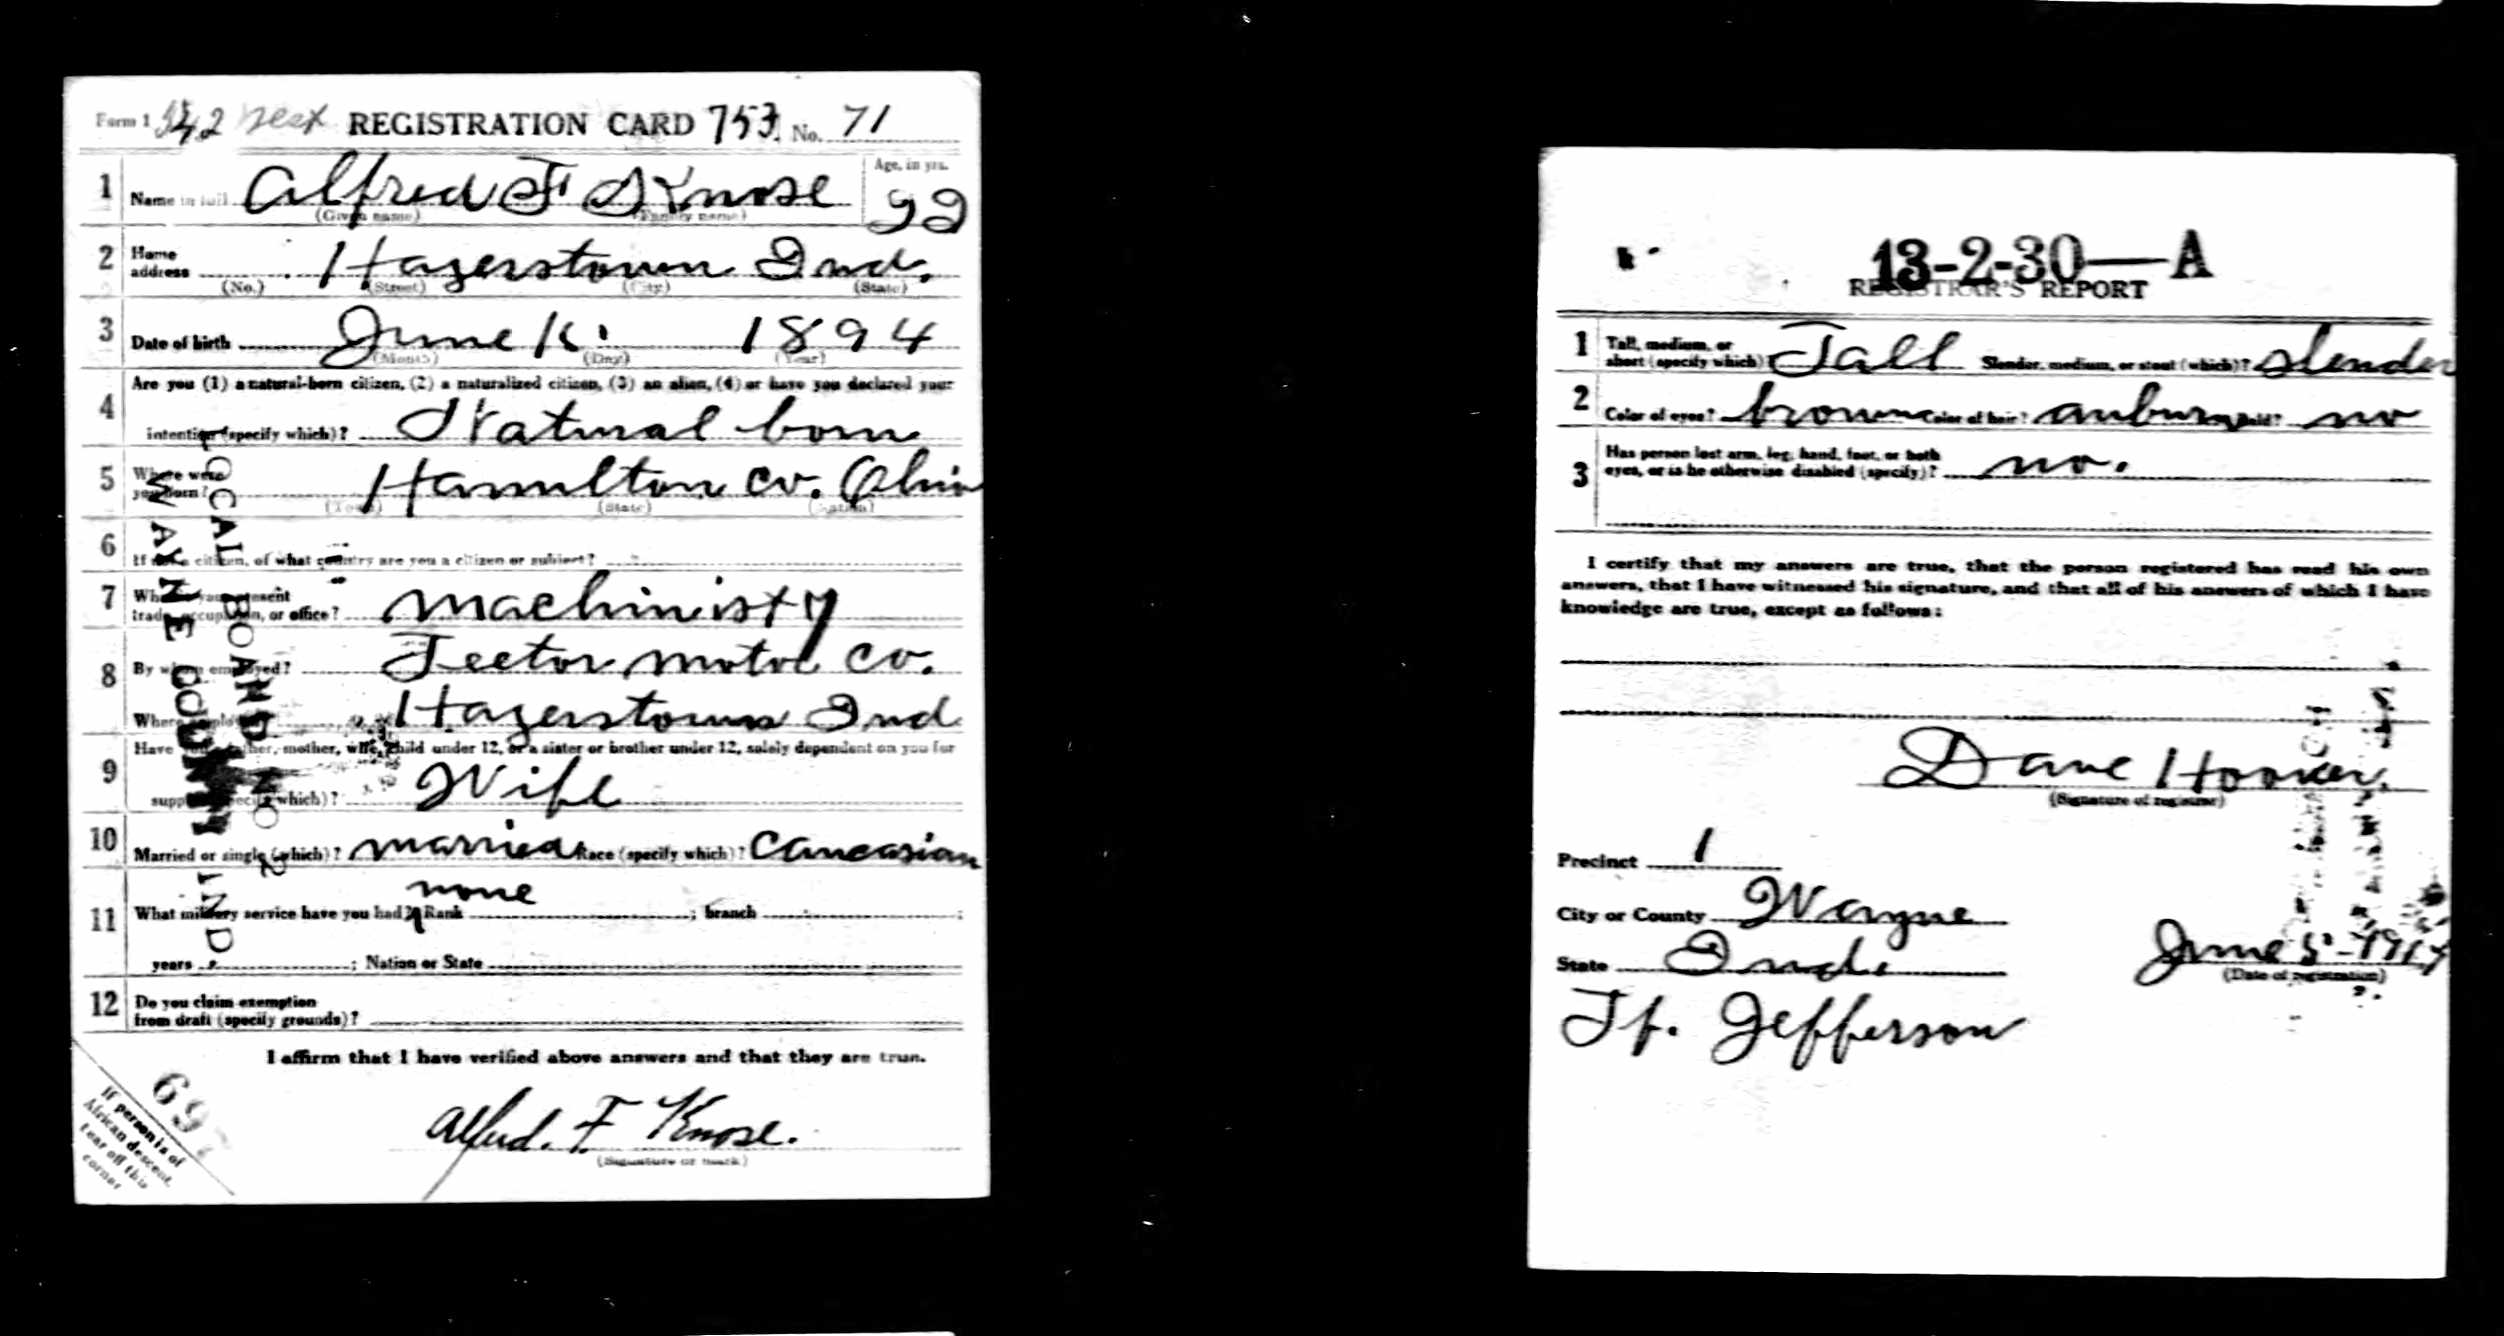 Form 1 REGISTRATION CARD 753 No. 71
1 Name in full Alfred F Knose Age, in yrs.
(Given name) (Family name) 22
2 Home address Hagerstown Ind.
(No.) (Street) (City) (State)
3 Date of birth June 1894
(Month) (Day) (Year)
4 Are you (1) a natural-born citizen, (2) a naturalized citizen, (3) an alien, (4) or have you declared your
intention (specify which)? Natural born
5 Where were you born? Hamilton Co. Ohio
(Town) (State) (Nation)
6 If not a citizen, of what country are you a citizen or subject?
7 What is your present trade, occupation, or office? machinist
8 By whom employed? Teetor Motor Co.
Where employed? Hagerstown Ind
9 Have you a father, mother, wife, child under 12, or a sister or brother under 12, solely dependent on you for
support (specify which)? Wife
10 Married or single (which)? married Race (specify which)? Caucasian
none
11 What military service have you had? Rank ; branch ;
years ; Nation or State
12 Do you claim exemption
from draft (specify grounds)?
I affirm that I have verified above answers and that they are true.
Alfred. F Knose.
(Signature or mark)
If person is of
African descent,
tear off this
corner
LOCAL BOARD NO 2
WAYNE COUNTY IND
13-2-30—A
REGISTRAR'S REPORT
1 Tall, medium, or
short (specify which)? Tall Slender, medium, or stout (which)? slender
2 Color of eyes? brown Color of hair? auburn Bald? no
3 Has person lost arm, leg, hand, foot, or both
eyes, or is he otherwise disabled (specify)? no.
I certify that my answers are true, that the person registered has read his own
answers, that I have witnessed his signature, and that all of his answers of which I have
knowledge are true, except as follows:
Dane Hoover
(Signature of registrar)
Precinct 1
City or County Wayne
State Ind. June 5-1917
(Date of registration)
Tp. Jefferson